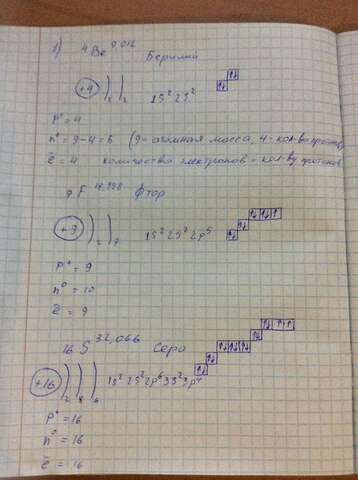 1) ₄Be⁹·⁰¹² Берилий
+4 ) ) 2 2 1S² 2S² ↑↓ ↑↓
P⁺ = 4
n⁰ = 9-4=5 (9-атомная масса, 4-кол-во протонов)
ē = 4 количество электронов = кол-ву протонов
₉F¹⁸·⁹⁹⁸ Фтор
+9 ) ) 2 7 1S² 2S² 2p⁵ ↑↓ ↑↓ ↑↓ ↑↓ ↑
P⁺ = 9
n⁰ = 10
ē = 9
₁₆S³²,⁰⁶⁶ Сера
+16 ) ) ) 2 8 6 1S² 2S² 2p⁶ 3S² 3p⁴ ↑↓ ↑↓ ↑↓ ↑↓ ↑↓ ↑↓ ↑↓ ↑ ↑
P⁺ = 16
n⁰ = 16
ē = 16